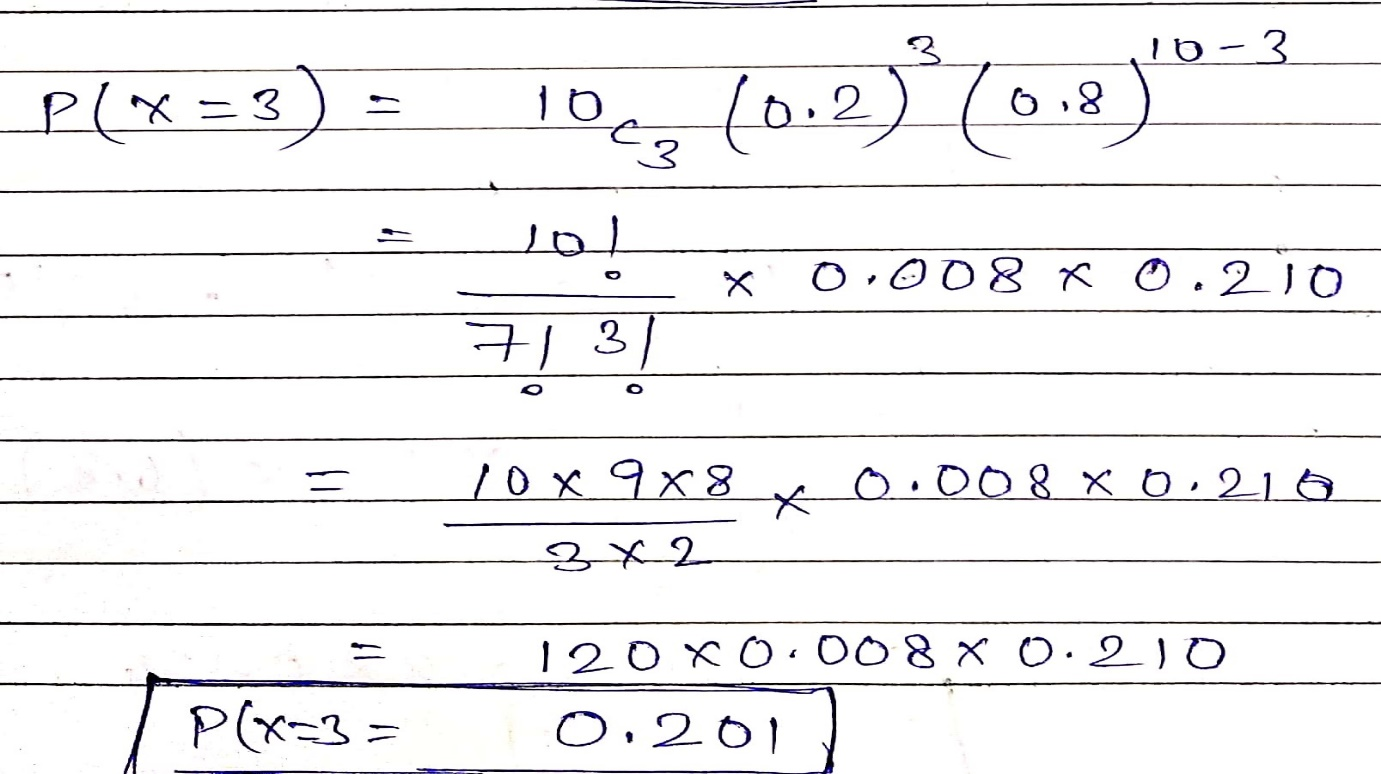 P(x=3) = 10c₃ (0.2)³ (0.8)¹⁰⁻³
= 10! / 7! 3! × 0.008 × 0.210
= 10×9×8 / 3×2 × 0.008 × 0.210
= 120×0.008×0.210
P(x=3 = 0.201